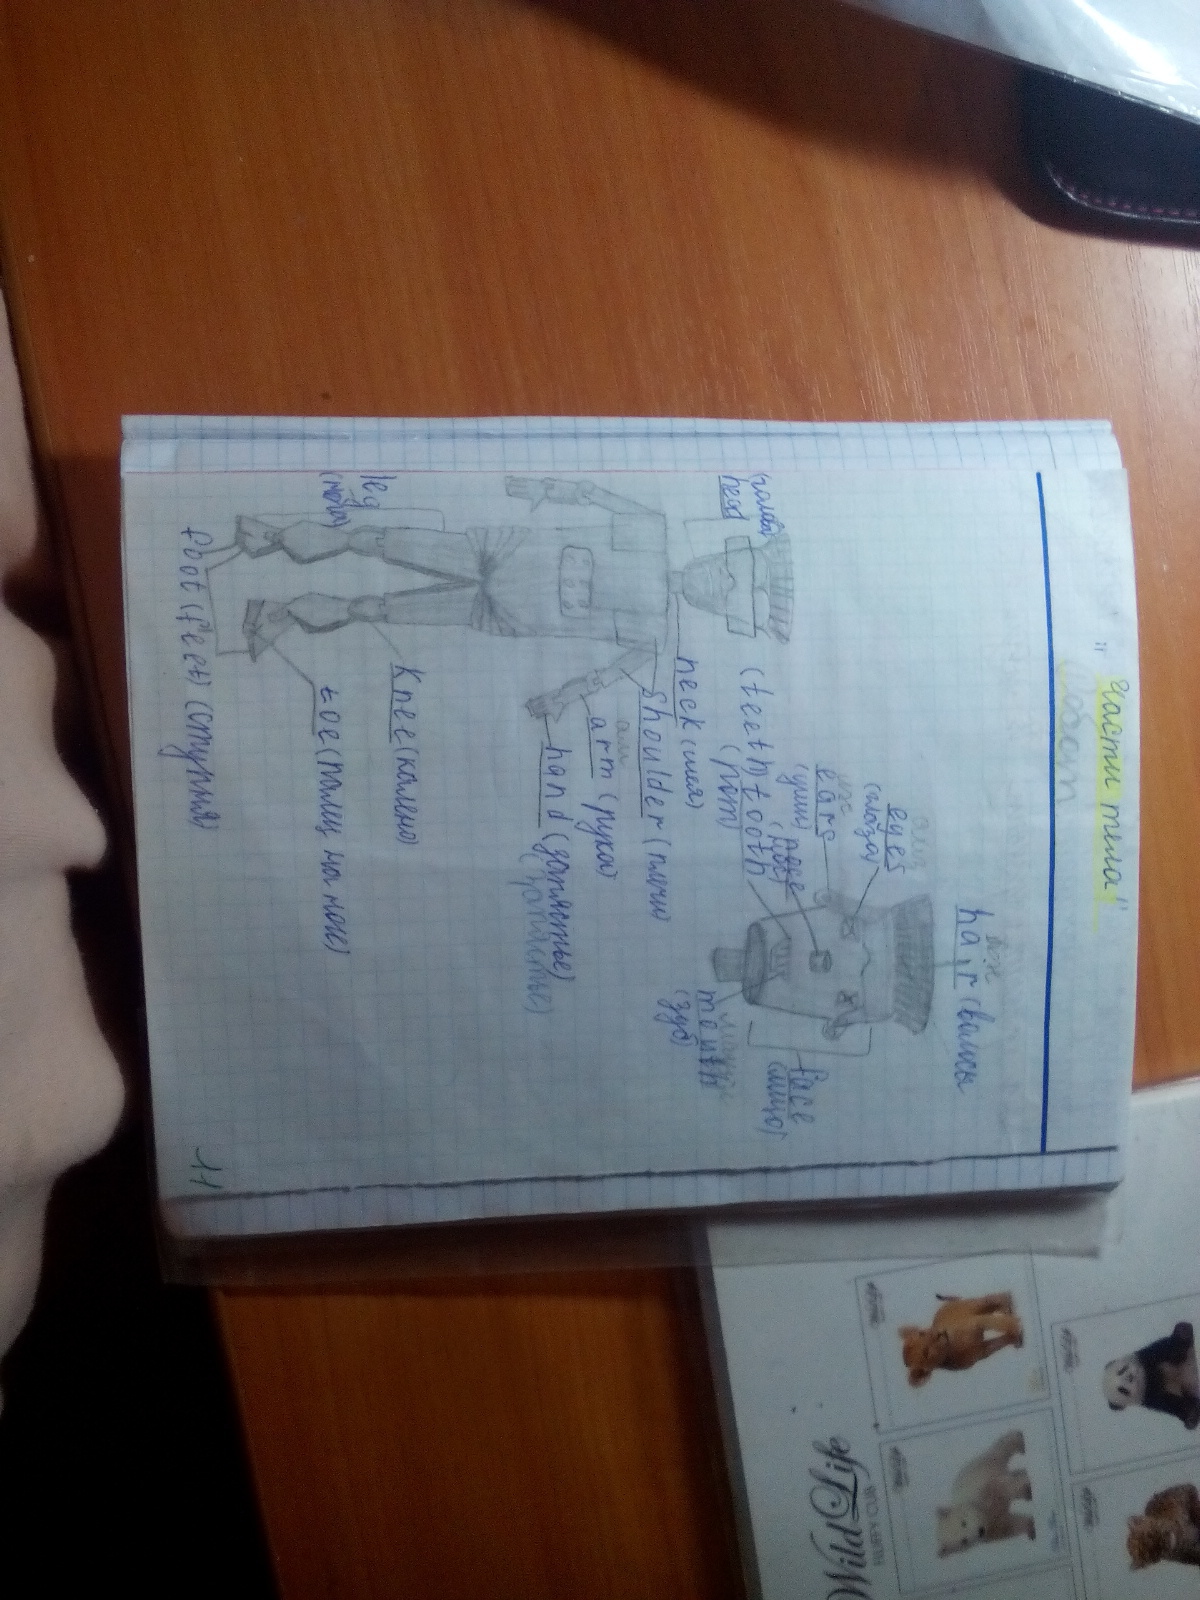 "части тела"
Робот
hair (волосы
eyes
(глаза)
ears
(уши)
nose
(нос)
(teeth) tooth
(рот)
face
(лицо)
mouth
(зуб)
head
neck (шея)
shoulder (плечи)
arm (рука)
hand (запястье)
knee (колено)
toe (палец на ноге)
leg
(нога)
foot (feet) (ступня)
11
Wild Life
FLUFFY CUB